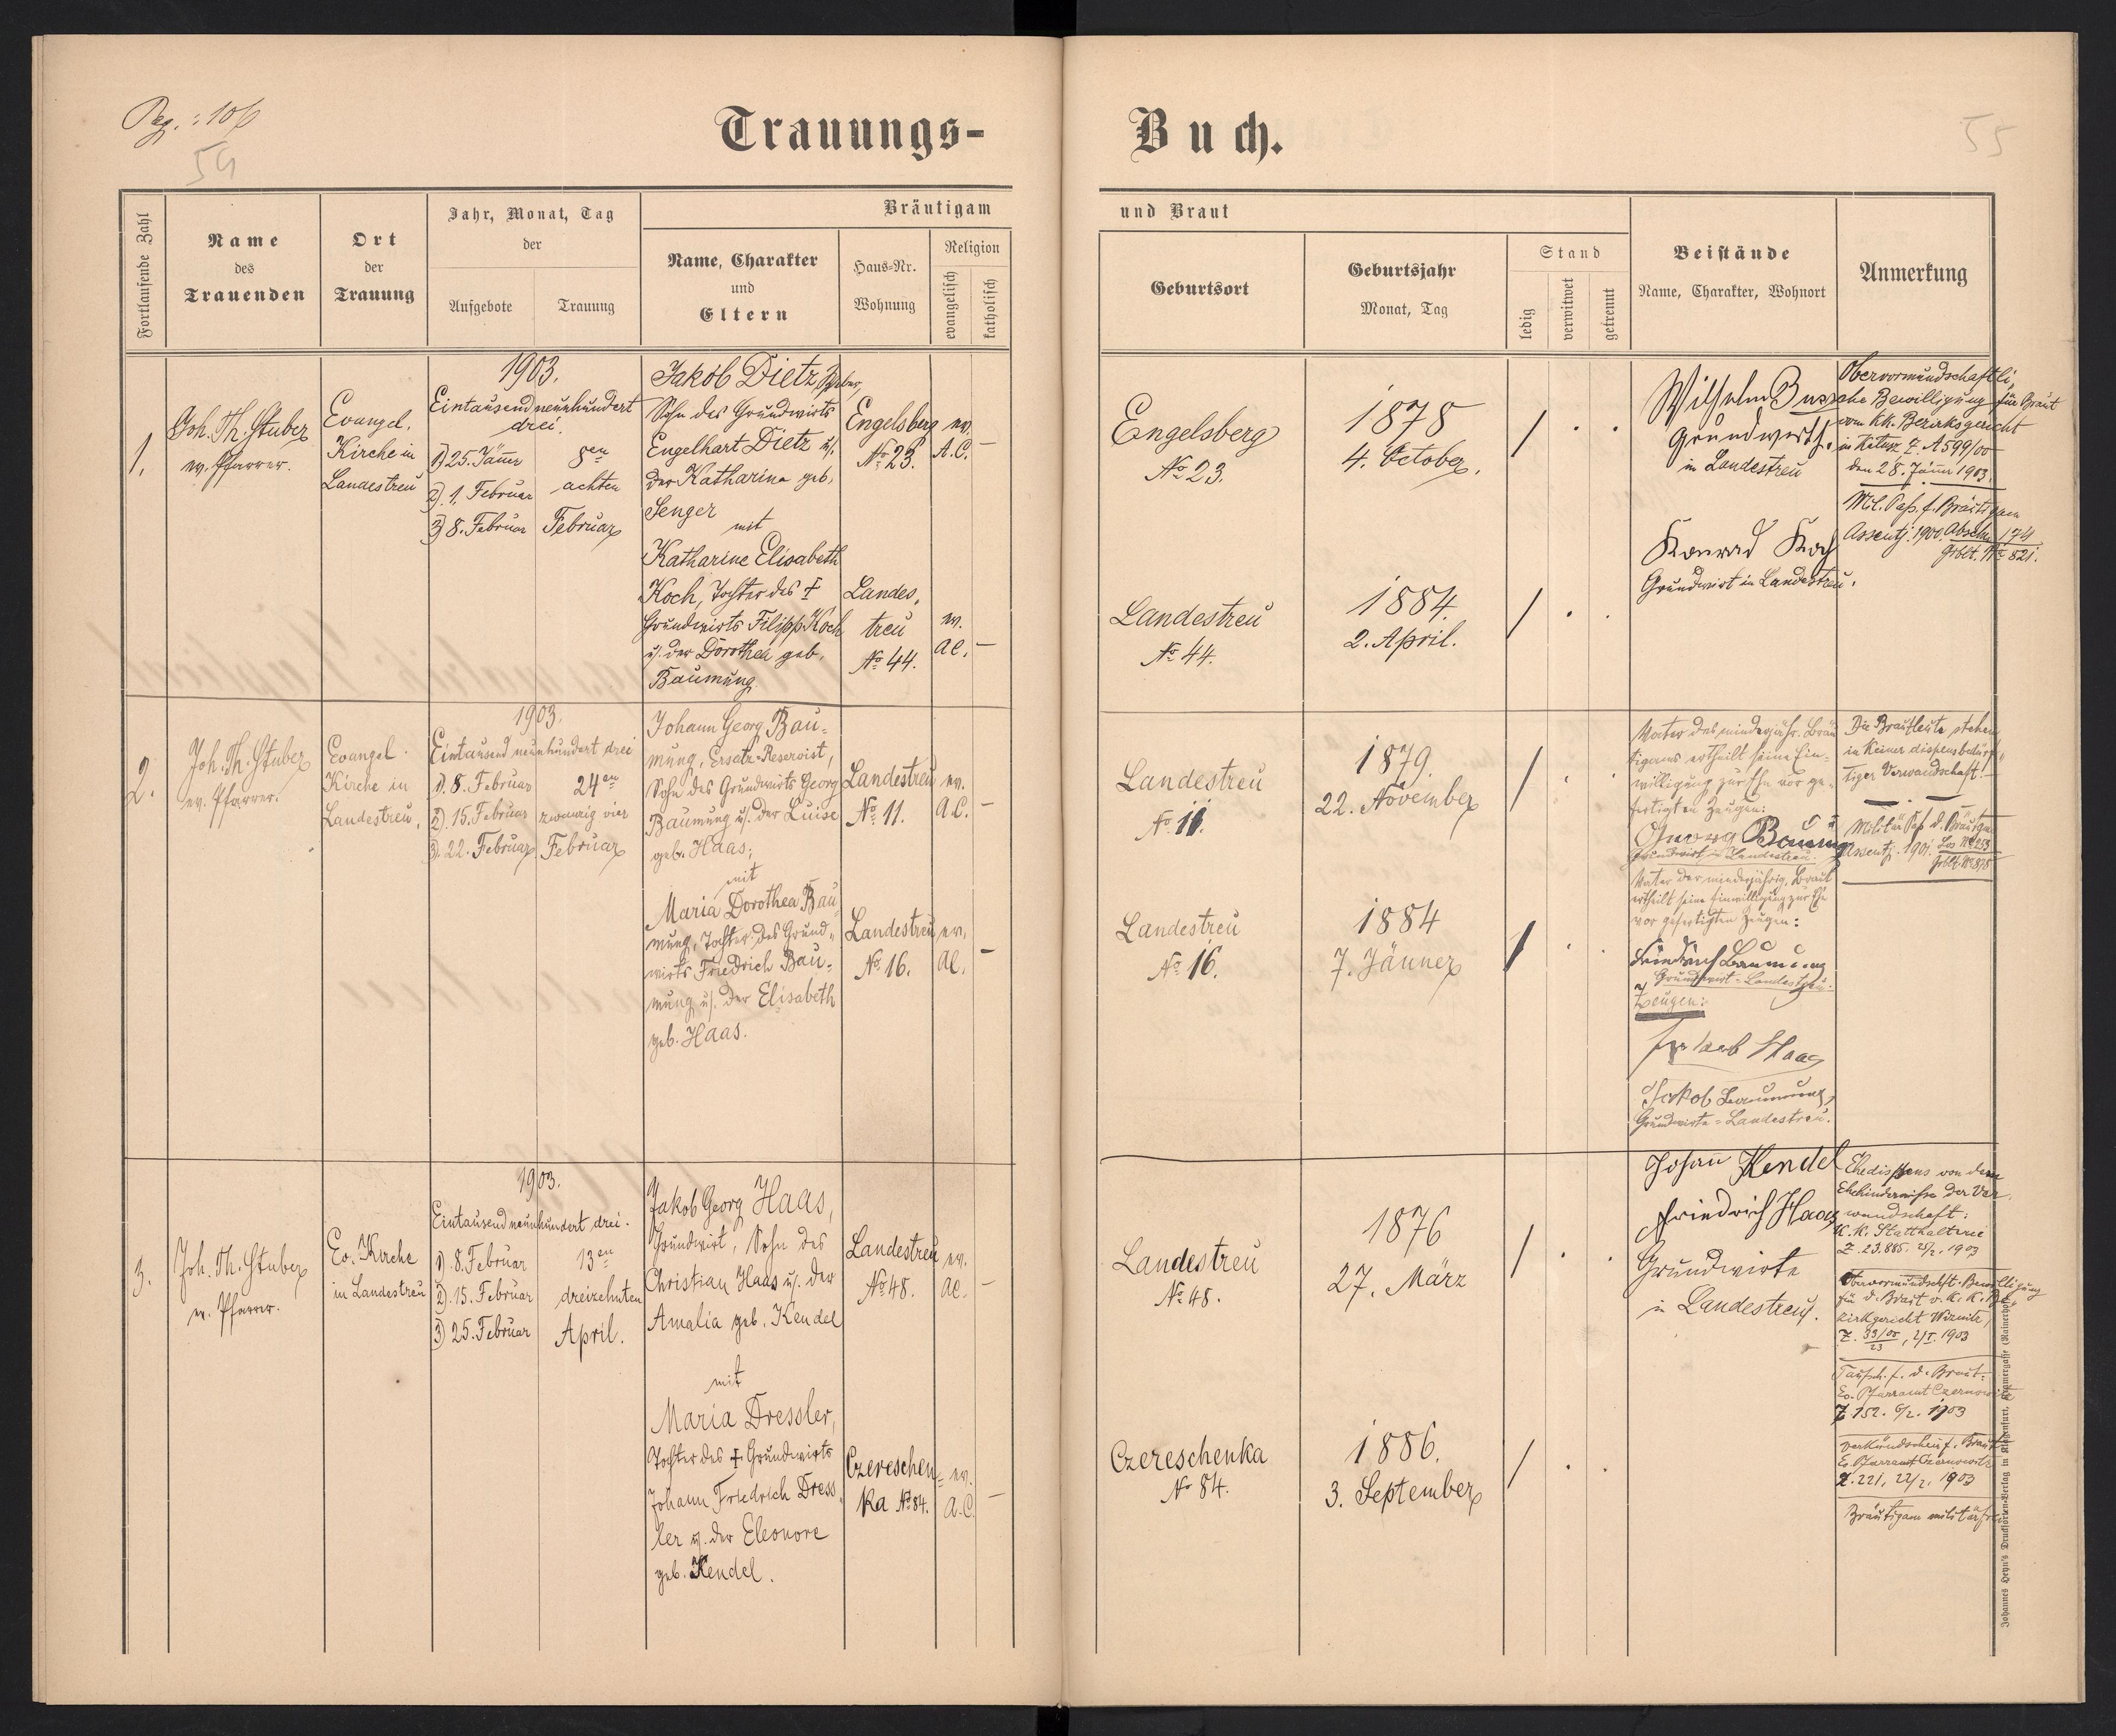 Pag.: 106
54
Trauungs-
Buch.
55
Fortlaufende Zahl
Name
des
Trauenden
Ort
der
Trauung
Jahr, Monat, Tag
der
Aufgebote
Trauung
Bräutigam
Name, Charakter
und
Eltern
Haus-Nr.
Wohnung
Religion
evangelisch
katholisch
und Braut
Geburtsort
Geburtsjahr
Monat, Tag
Stand
ledig
verwitwet
getrennt
Beistände
Name, Charakter, Wohnort
Anmerkung
1.
Joh. Th. Stuber
ev. Pfarrer.
Evangel.
Kirche in
Landestreu
1903.
Eintausend neunhundert
drei.
1) 25. Jänner
2). 1. Februar
3) 8. Februar
8en
achten
Februar
Jakob Dietz
Sohn des Grundwirts
Engelhart Dietz u.
der Katharina geb.
Senger
mit
Katharine Elisabeth
Koch, Tochter des †
Grundwirts Filipp Koch
u. der Dorothea geb.
Baumung.
Engelsberg
No 23.
ev.
A.C. –
Landes,
treu
No 44.
ev.
AC. –
Engelsberg
No 23.
1878
4. October.
Landestreu
No 44.
1884.
2. April.
Wilhelm
Grundwirth.
in Landestreu
Konrad Koch
Grundwirt in Landestreu.
Obervormundschaftli,
che Bewilligung für Braut
vom kk. Bezirksgericht
in Z. A 599/00
den 28. Jänner 1903.
Mil. Paß. f. Bräutigam
Assentj. 1900. 174
Grblt. No 821.
2.
Joh. Th. Stuber
ev. Pfarrer.
Evangel.
Kirche in
Landestreu.
1903.
Eintausend neunhundert drei
1). 8. Februar
2). 15. Februar
3). 22. Februar
24en
zwanzig vier
Februar
Johann Georg Bau-
mung, Ersatz-Reservist,
Sohn des Grundwirts Georg
Baumung u. der Luise
geb. Haas;
mit
Maria Dorothea Bau
mung, Tochter des Grund-
wirts Friedrich Bau-
mung u. der Elisabeth
geb. Haas.
Landestreu
No 11.
ev.
A.C. –
Landestreu
No 16.
ev.
AC. –
Landestreu
No 11.
1879.
22. November
Landestreu
No 16.
1884
7. Jänner
Vater des minderjähr. Bräu
tigams ertheilt seine Ein-
willigung zur Ehe vor ge-
fertigten Zeugen:
Georg Baumung
Grundwirt in Landestreu.
Vater der minderjährig. Braut
ertheilt seine Einwilligung zur Ehe
vor gefertigten Zeugen:
Friedrich Baumung
Grundwirt = Landestreu.
Zeugen:
Jakob Haas
Jakob Baumung,
Grundwirte = Landestreu.
Die Brautleute stehen
in keiner dispensbedürf
tiger Verwandschaft. –
Militär Paß d. Bräutigam
Assentj. 1901. Los No 253
Grblt. No 878
3.
Joh. Th. Stuber
ev. Pfarrer.
Ev. Kirche
in Landestreu
1903.
Eintausend neunhundert drei.
1). 8. Februar
2). 15. Februar
3) 25. Februar
13en
dreizehnten
April.
Jakob Georg Haas,
Grundwirt, Sohn des
Christian Haas u. der
Amalia geb. Kendel
mit
Maria Dressler,
Tochter des †. Grundwirts
Johann Friedrich Dress
ler u. der Eleonore
geb. Kendel.
Landestreu
No 48.
ev.
AC. –
Czereschen
ka No 84.
ev.
A.C. –
Landestreu
No 48.
1876
27. März
Czereschenka
No 84.
1886.
3. September
Johann Kendel
Friedrich Haas
Grundwirte
in Landestreu.
Ehedispens von dem
Ehehindernisse der Ver
wandschaft:
K. K. Statthalterei
Z. 23.885. 25/2. 1903
Obervormundschft. Bewilligung
für d. Braut v. K. K. Be
zirksgericht Wiznitz,
Z. 33/00/23, 2/I. 1903
Taufsch. f. d. Braut:
Ev. Pfarramt Czernowitz
Z. 152. 6/2. 1903
Verkündschein f. Braut
Ev. Pfarramt Czernowitz
Z. 221, 22/2. 1903
Bräutigam militärfrei
Johannes Heyn's Drucksorten-Verlag in Klagenfurt, Kramergasse